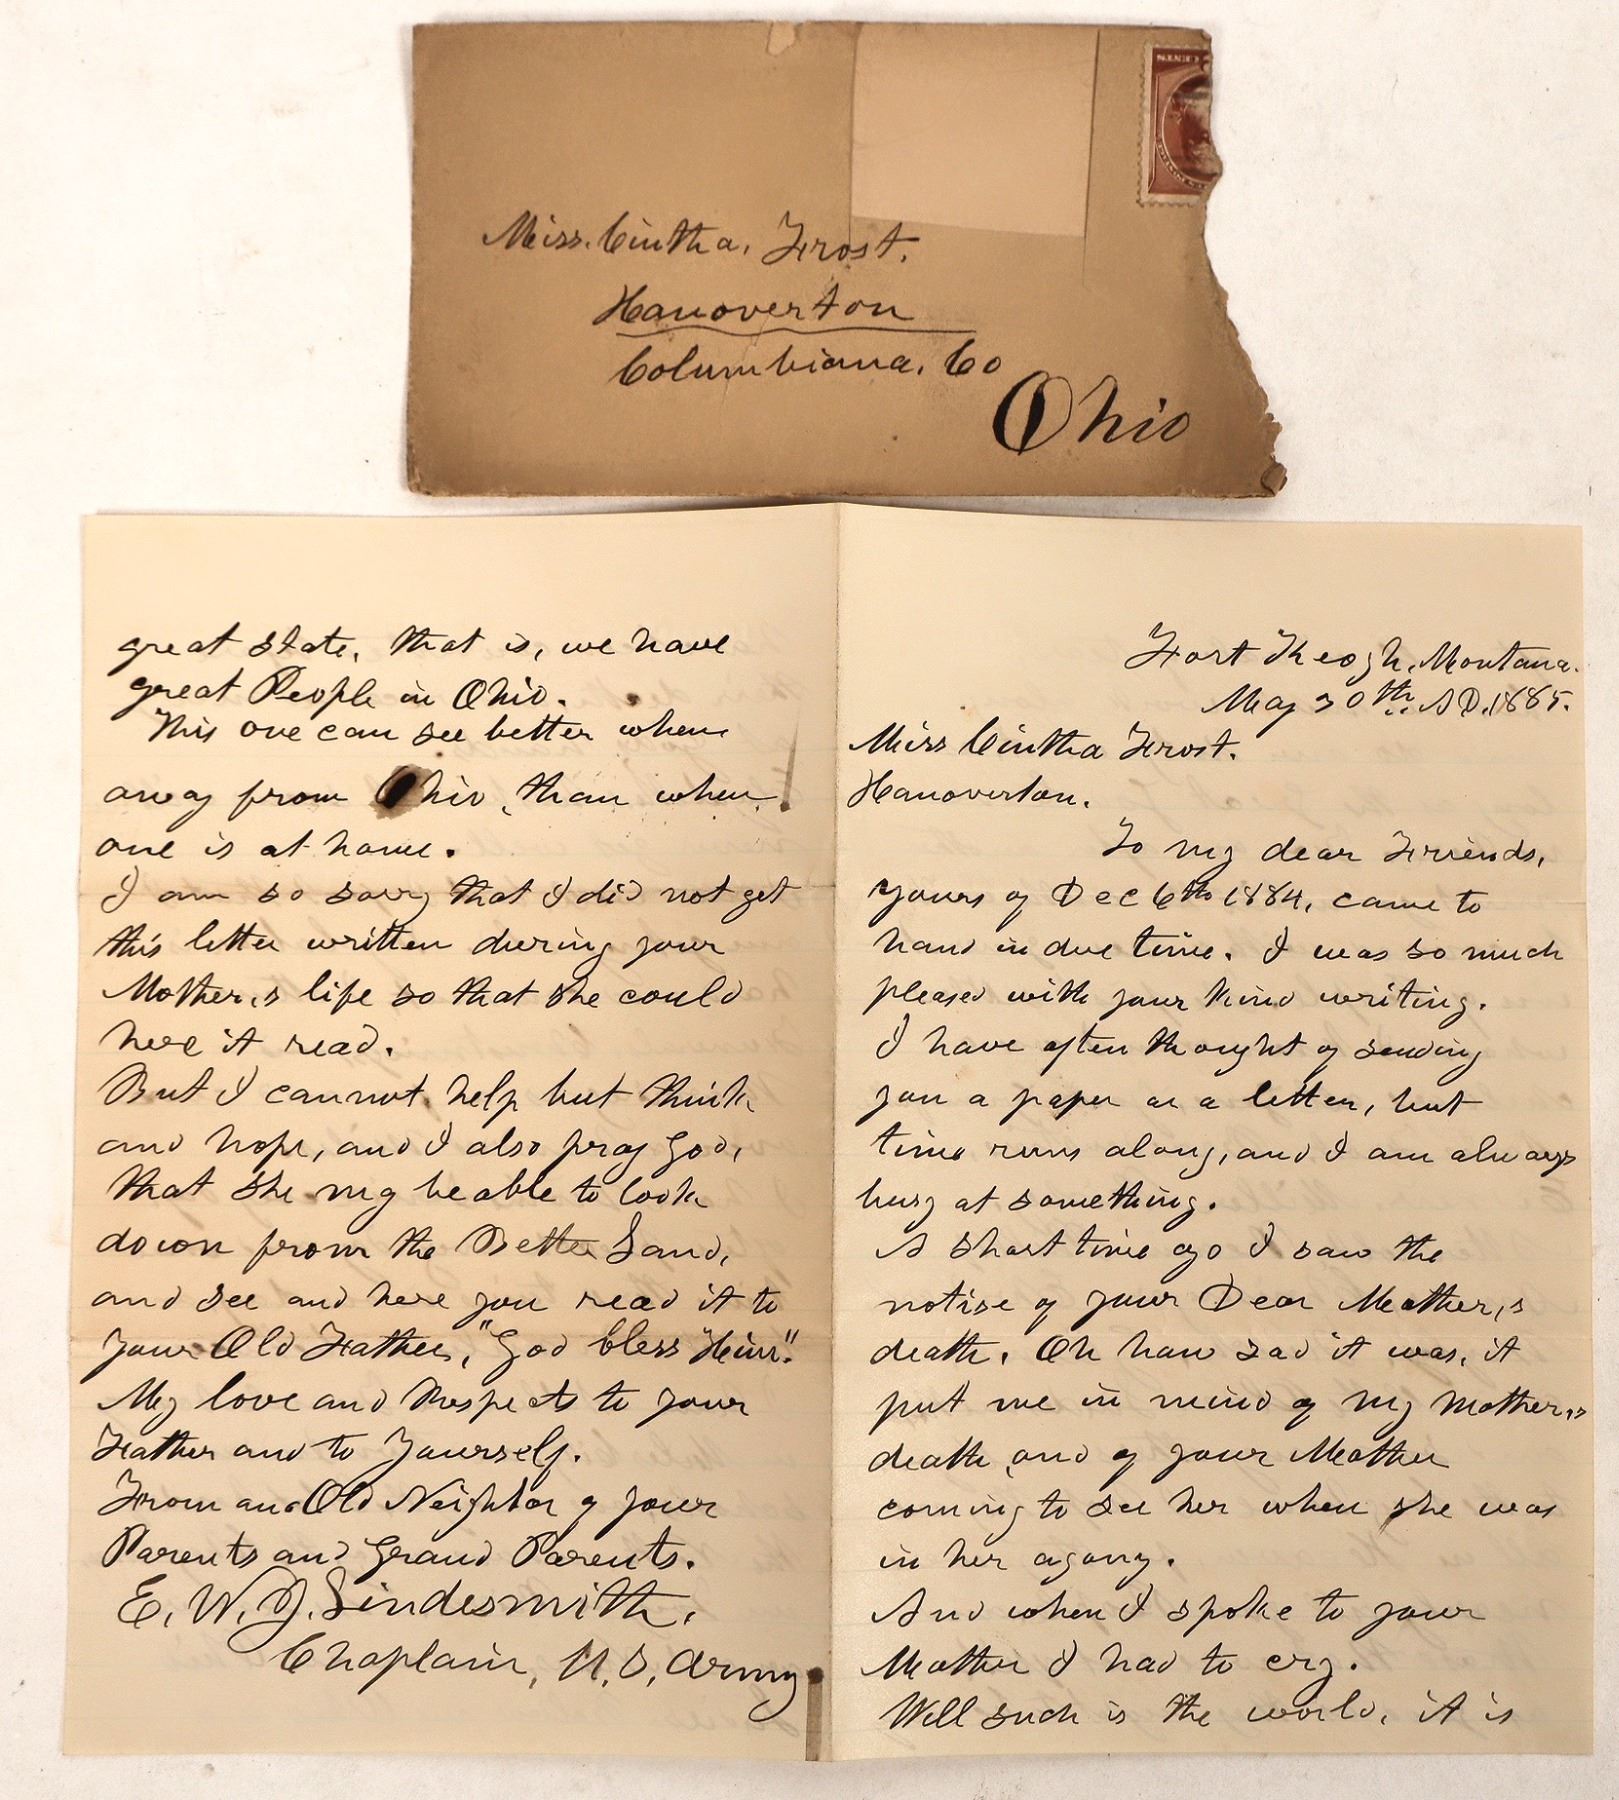 Miss. Cintha. Frost.
Hanoverton
Columbiana. Co
Ohio
Fort Keogh, Montana.
May 30th AD. 1885.
Miss Cintha Frost.
Hanoverton.
To my dear Friends,
yours of Dec 6th 1884, came to
hand in due time. I was so much
pleased with your kind writing.
I have often thought of sending
you a paper or a letter, but
time runs along, and I am always
busy at something.
A short time ago I saw the
notise of your Dear Mother,s
death. Oh how sad it was, it
put me in mind of my Mother,s
death, and of your Mother
coming to see her when she was
in her agony.
And when I spoke to your
Mother I had to cry.
Well such is the world, it is
great state, that is, we have
great People in Ohio.
This one can see better when
away from Ohio, than when
one is at home.
I am so sorry that I did not get
this letter written during your
Mother,s life so that she could
here it read.
But I cannot help but think
and hope, and I also pray God,
that she my be able to look
down from the Better Land,
and see and here you read it to
your Old Father, "God bless Him".
My love and Respects to your
Father and to Yourself.
From an Old Neighbor of your
Parents and Grand Parents.
E. W. J. Lindesmith,
Chaplain, U. S. Army